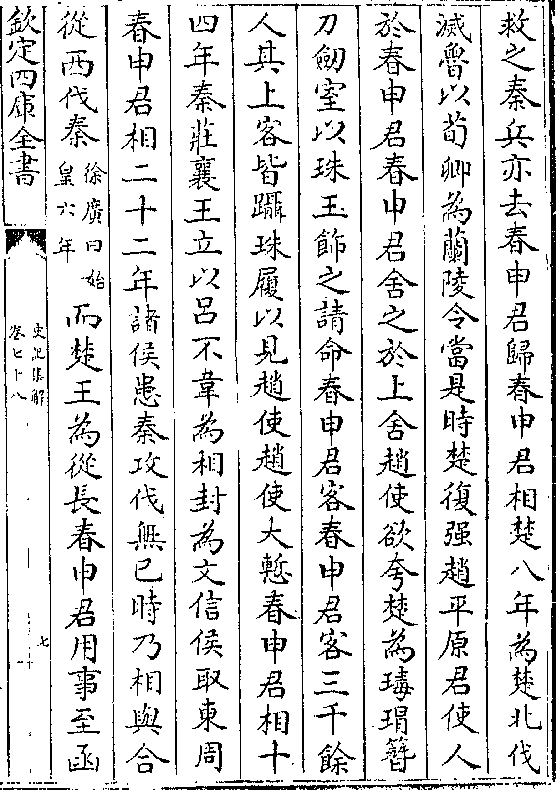 救之秦兵亦去春申君歸春申君相楚八年為楚北伐
滅魯以荀卿為蘭陵令當是時楚復强趙平原君使人
於春申君春申君舍之於上舍趙使欲夸楚為瑇瑁簪
刀劒室以珠玉飾之請命春申君客春申君客三千餘
人其上客皆躡珠履以見趙使趙使大慙春申君相十
四年秦莊襄王立以呂不韋為相封為文信侯取東周
春申君相二十二年諸侯患秦攻伐無已時乃相與合
從西伐秦徐廣曰始皇六年而楚王為從長春申君用事至函
欽定四庫全書
史記集解
卷七十八
七